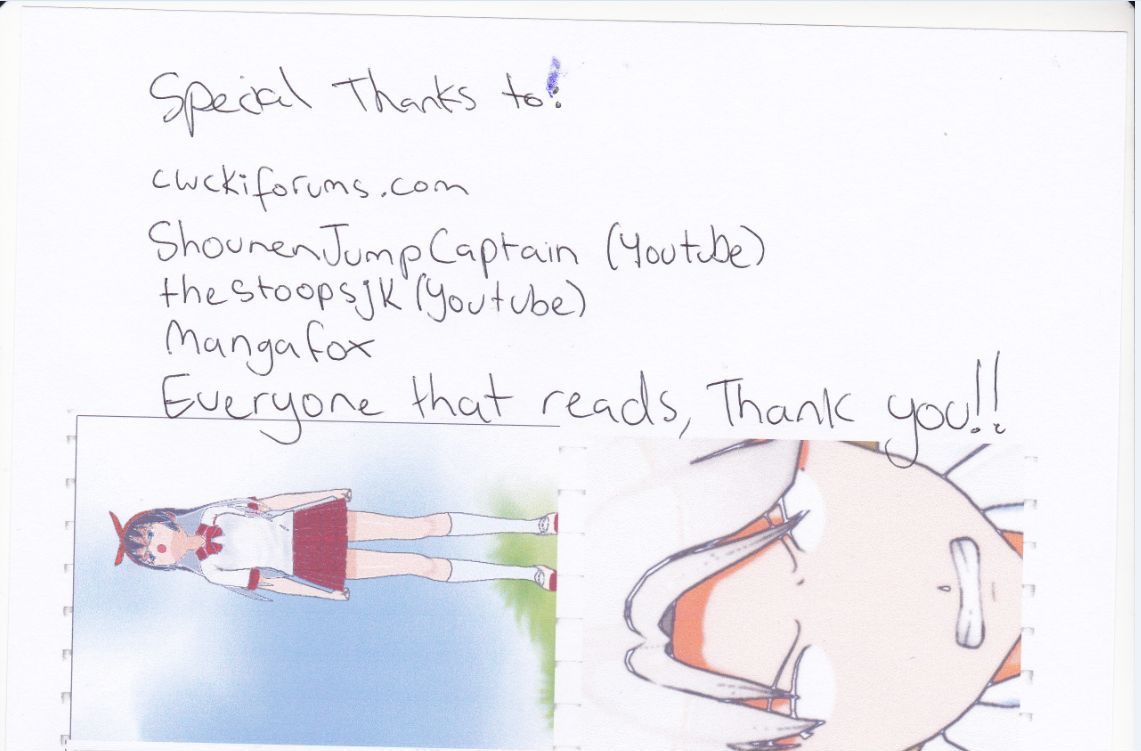 Special Thanks to!
cwckiforums.com
ShounenJumpCaptain (Youtube)
thestoopsjk (Youtube)
Mangafox
Everyone that reads, Thank you!!